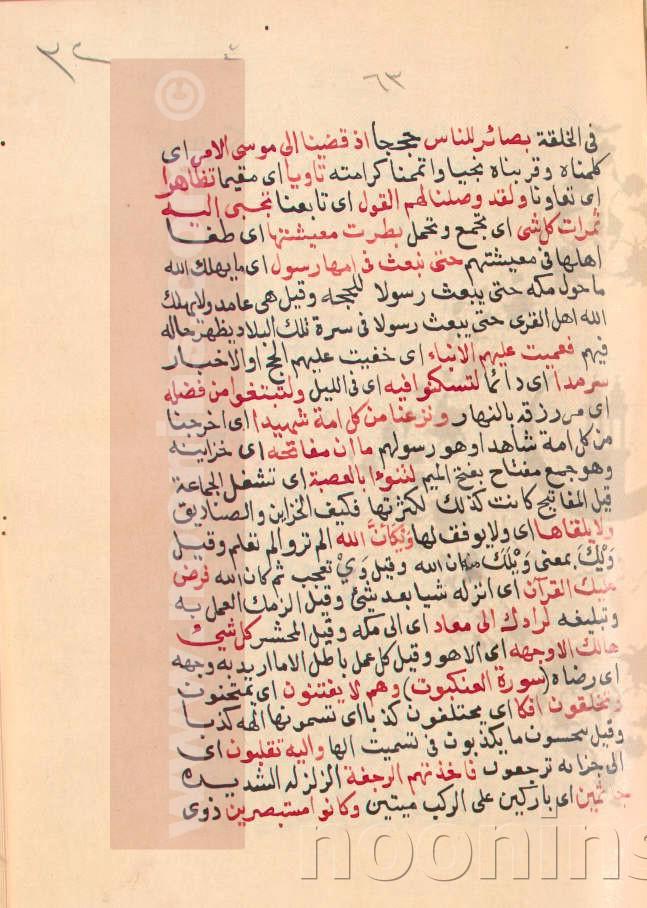 ٦٣
فى الخلقة بصائر للناس حججا اذ قضينا الى موسى الامر اى
كلمناه وقربناه نجيا واتممنا كرامته ثاويا اى مقيما تظاهرا
اى تعاونا ولقد وصلنا لهم القول اى تابعنا يجبى اليه
ثمرات كل شى اى يجمع ويحمل بطرت معيشتها اى طغا
اهلها فى معيشتهم حتى نبعث فى امها رسول اى ما يهلك الله
ما حول مكه حتى يبعث رسولا للحجه وقيل هى عامه ولا يهلك
الله اهل القرى حتى يبعث رسولا فى سرة تلك البلاد يظهر حاله
فيهم فعميت عليهم الانباء اى خفيت عليهم الحجج او الاخبار
سرمدا اى دائما لتسكنوا فيه اى فى الليل ولتبتغوا من فضله
اى من رزقه بالنهار ونزعنا من كل امة شهيدا اى اخرجنا
من كل امة شاهدا وهو رسولهم ما ان مفاتحه اى خزاينه
وهو جمع مفتاح بفتح الميم لتنوءا بالعصبة اى تثقل الجماعة
قيل المفاتيح كانت كذلك لكثرتها فكيف الخزاين والصناديق
ولا يلقاها اى ولا يوفق لها ويكانّ الله الم تروا الم تعلم وقيل
وَيْك بمعنى وَيْلك كان الله وقيل وَيْ تعجب ثم كان الله فرض
عليك القرآن اى انزله شيا بعد شئ وقيل الزمك العمل به
وتبليغه لرادك الى معاد اى الى مكه وقيل المحشر كل شيئ
هالك الا وجهه اى الا هو وقيل كل عمل باطل الا ما اريد به وجهه
اى رضاه (سورة العنكبوت) وهم لا يفتنون اى يمتحنون
وتخلقون افكا اى يختلقون كذبا اى تسمونها الهه كذبا
وقيل ما يكذبون فى تسميت الها واليه تقلبون اى
الى جزايه ترجعون فاخذتهم الرجفة الزلزله الشديده
جاثمين اى باركين على الركب ميتين وكانوا مستبصرين ذوى
noonins